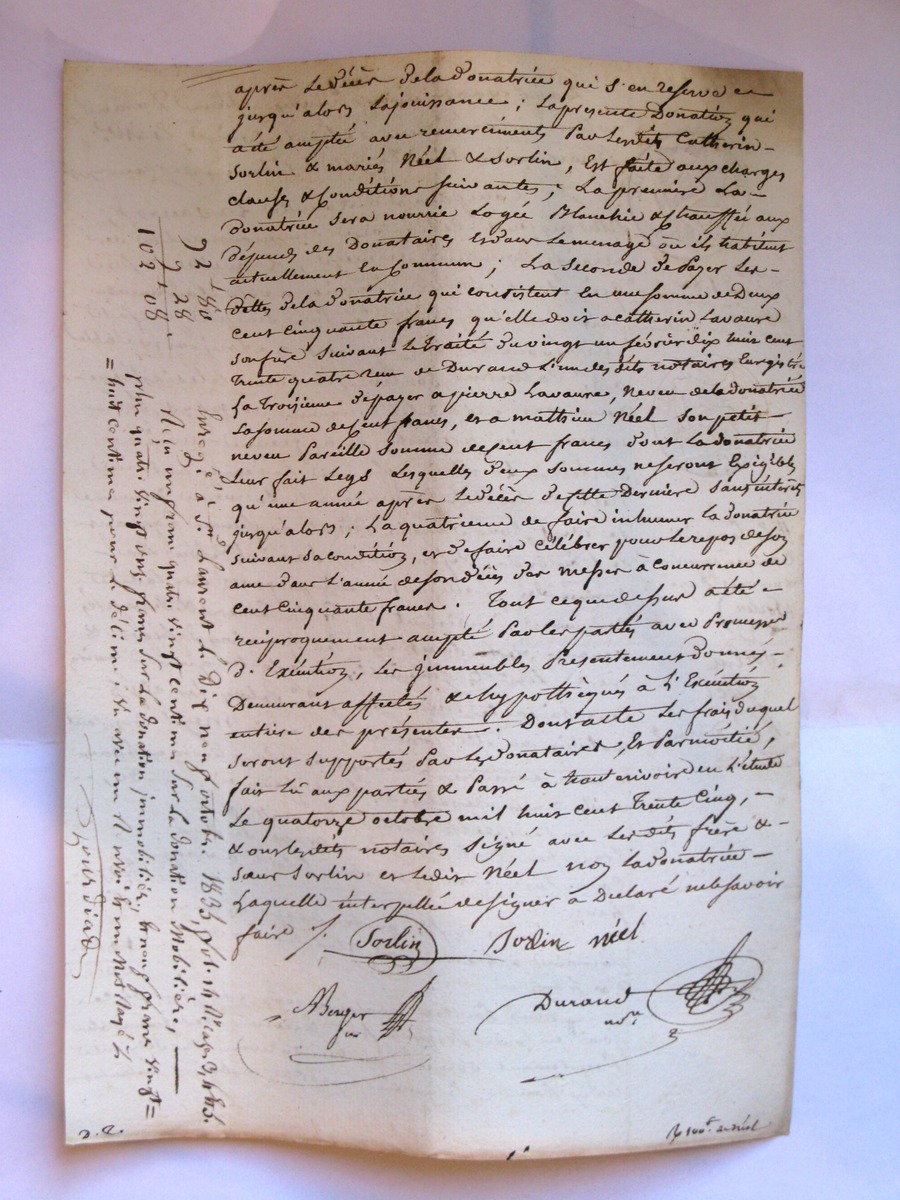 après le décès de la donatrice qui s'en reserve
jusqu'alors la jouissance ; la presente Donation qui
a été accepté avec remerciments Par lesdits Catherin
Sorlin & mariés Néel & Sorlin, Est faite aux charges
clauses & Conditions suivantes ; La premiere La
donatrice sera nourrie Logée Blanchie & chauffée aux
Dépends des Donataires Et dans le menage où ils habitent
actuellement En Commun ; La seconde de Payer les
Dettes de la donatrice qui consistent En une somme de Deux
cent cinquante francs qu'elle doit a Catherin Lavaure
son frère suivant le traité du vingt un fevrier dix huit cent
trente quatre Reçu de Durand L'un des dits notaires Enregistré
La troisieme de payer a pierre Lavaure, Neveu de la donatrice
La somme de Cent francs, et a mathieu Néel son petit
neveu Pareille somme de Cent francs dont La donatrice
Leur fait Legs Lesquelles deux sommes ne seront Exigibles
qu'une année après le décès de cette Derniere sans intérêts
jusqu'alors ; La quatrieme de faire inhumer la donatrice
suivant sa condition, et de faire célébrer pour le repos de son
ame dans L'année de son décès des messes à Concurrence de
cent cinquante francs. Tout ce que dessus a été
reciproquement accepté Par les parties avec Promesse
d'Exécution, Les immeubles Presentement donnés
Demeurant affectés & hypothèqués à L'Exécution
entiere des présentes. Dont acte Les frais duquel
seront supportés Par les donataires, Et Par moitié,
fait lû aux parties & Passé à en L'étude
Le quatorze octobre mil huit cent trente cinq,
& ont lesdits notaires Signé avec Lesdits frère &
sœur Sorlin et ledit Néel non La donatrice
Laquelle interpellée de signer a Declaré ne le savoir
faire ./.
Sorlin Sorlin néel
ABerger Durand
nore
1 80
92 28
9 "
102 08
Enregé à St Laurent le Dix neuf octobre 1835, fol.
Reçu un franc quatre vingt centimes sur la donation Mobilière,
plus quatre vingt onze francs sur la donation immobilière,
huit centimes pour le décime